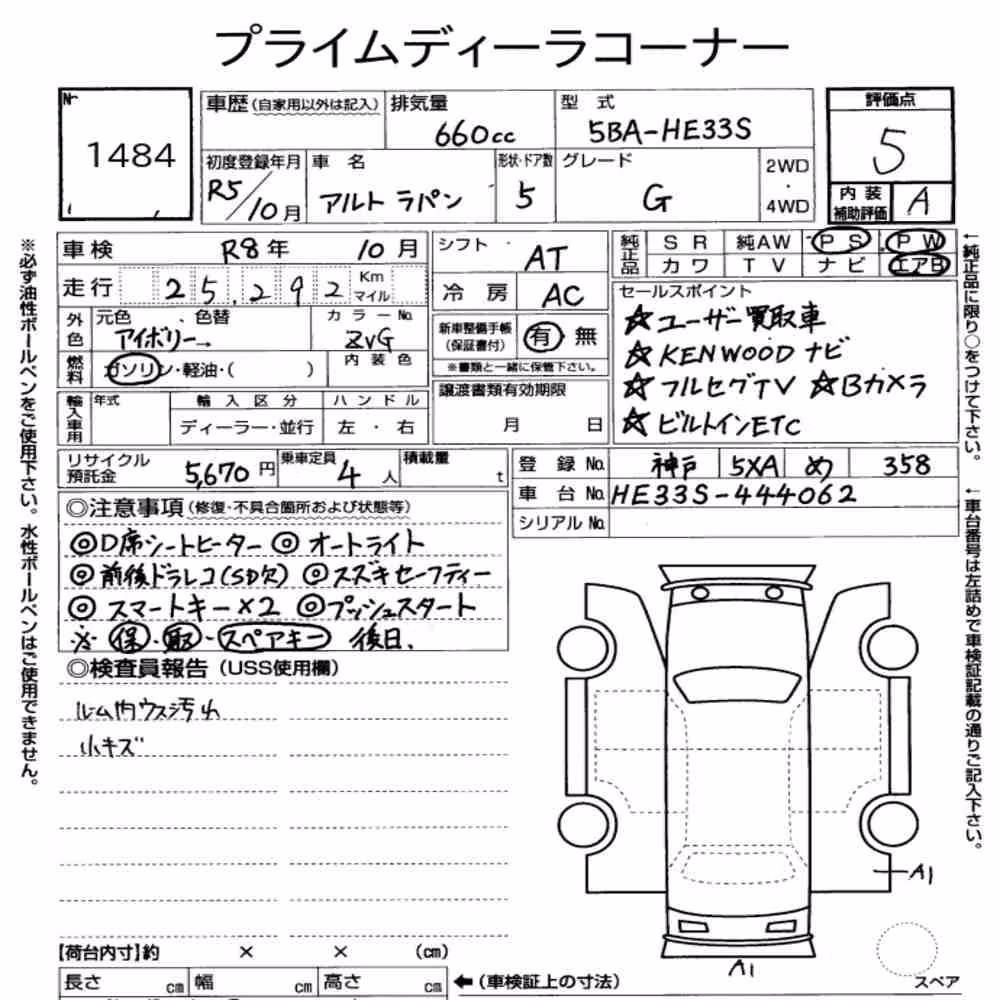 プライムディーラコーナー
No 1484
車歴(自家用以外は記入) 排気量 660cc 型式 5BA-HE33S 評価点 5
初度登録年月 R5/10月 車名 アルト ラパン 形状・ドア数 5 グレード G 2WD・4WD 内装補助評価 A
車検 R8年 10月 シフト AT 純正品 SR 純AW PS PW
カワ TV ナビ エアB
走行 25,292 Km マイル 冷房 AC
外色 元色 アイボリー→ 、色替 カラーNo. ZVG 新車整備手帳(保証書付) 有 無
※書類と一緒に保管下さい。
燃料 ガソリン・軽油・( ) 内装色
輸入車用 年式 輸入区分 ディーラー・並行 ハンドル 左・右 譲渡書類有効期限 月 日
セールスポイント
☆ユーザー買取車
☆KENWOODナビ
☆フルセグTV ☆Bカメラ
☆ビルトインETC
リサイクル預託金 5,670円 乗車定員 4人 積載量 t 登録No. 神戸 5XA め 358
車台No. HE33S-444062
シリアルNo.
◎注意事項(修復・不具合箇所および状態等)
◎D席シートヒーター ◎オートライト
◎前後ドラレコ(SD欠) ◎スズキセーフティー
◎スマートキー×2 ◎プッシュスタート
※保・取・スペアキー 後日.
◎検査員報告(USS使用欄)
ルーム内ウス汚れ
小キズ
A1
A1
スペア
【荷台内寸】約 × × (cm)
長さ cm 幅 cm 高さ cm ←(車検証上の寸法)
※必ず油性ボールペンをご使用下さい。水性ボールペンはご使用できません。
←純正品に限り○をつけて下さい。
←車台番号は左詰めで車検証記載の通りご記入下さい。